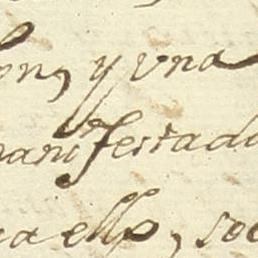 on, y una
manifestado
a ello, so